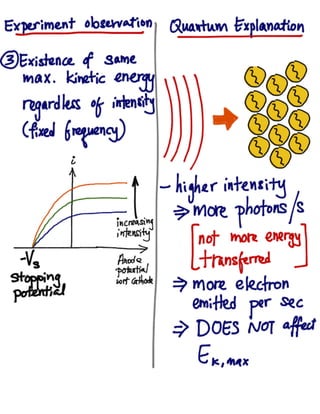 Experiment observation
③ Existence of same
max. kinetic energy
regardless of intensity
(fixed frequency)
i
increasing
intensity
-Vs
Stopping
potential
Anode
potential
wrt Cathode
Quantum Explanation
- higher intensity
⇒ more photons/s
[not more energy
transferred]
⇒ more electron
emitted per sec
⇒ DOES NOT affect
EK,max